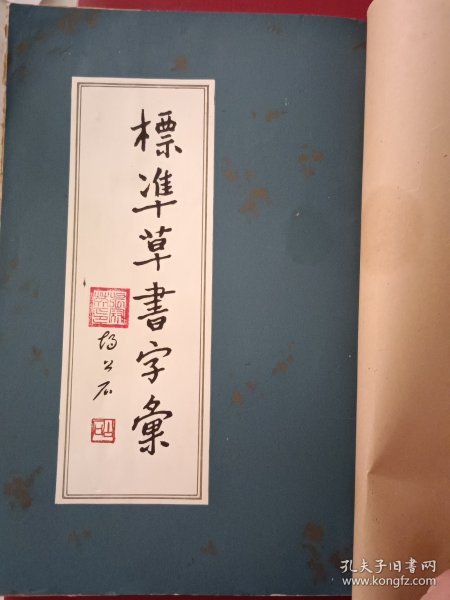 標準草書字彙
胡公石
孔夫子旧书网
www.kongfz.com